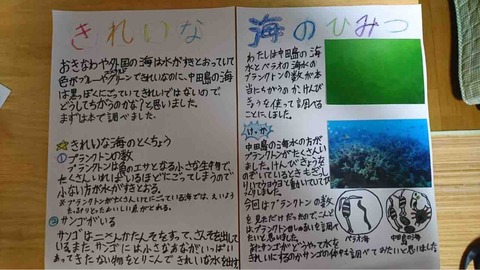 きれいな
海のひみつ
おきなわや外国の海は水がすきとおっていて
色がブルーやグリーンできれいなのに、中田島の海
は黒っぽくにごっていてきれいではないので、
どうしてちがうのかな?と思いました。
まずは本で調べました。
☆きれいな海のとくちょう
①プランクトンの数
プランクトンは魚のエサとなる小さな生物で、
たくさんいればいるほどにごってしまうので
小ない方が水がすきとおる。
※プランクトンがたくさんいてにごっている海では、えいよう
②サンゴがいる
サンゴは二さんかたんそをすって、さんそを出して
いる。また、サンゴには小さなあながいっぱい
あってきたない物をとりこんできれいな水を出す
わたしは中田島の海
水とパラオの海水の
プランクトンの数が本
当にちがうのか、けんび
きょうを使って調べる
ことにしました。
けっか
中田島の海水の方が
プランクトンがたくさんい
ました。けんびきょうを
のぞいているとときどき
今回はプランクトンの数
を見ただけだったので、こんど
たいと思いました。
またサンゴがどうやって水を
きれいにするのかサンゴの体も調べてみたいと思いました
パラオ海
中田島の海